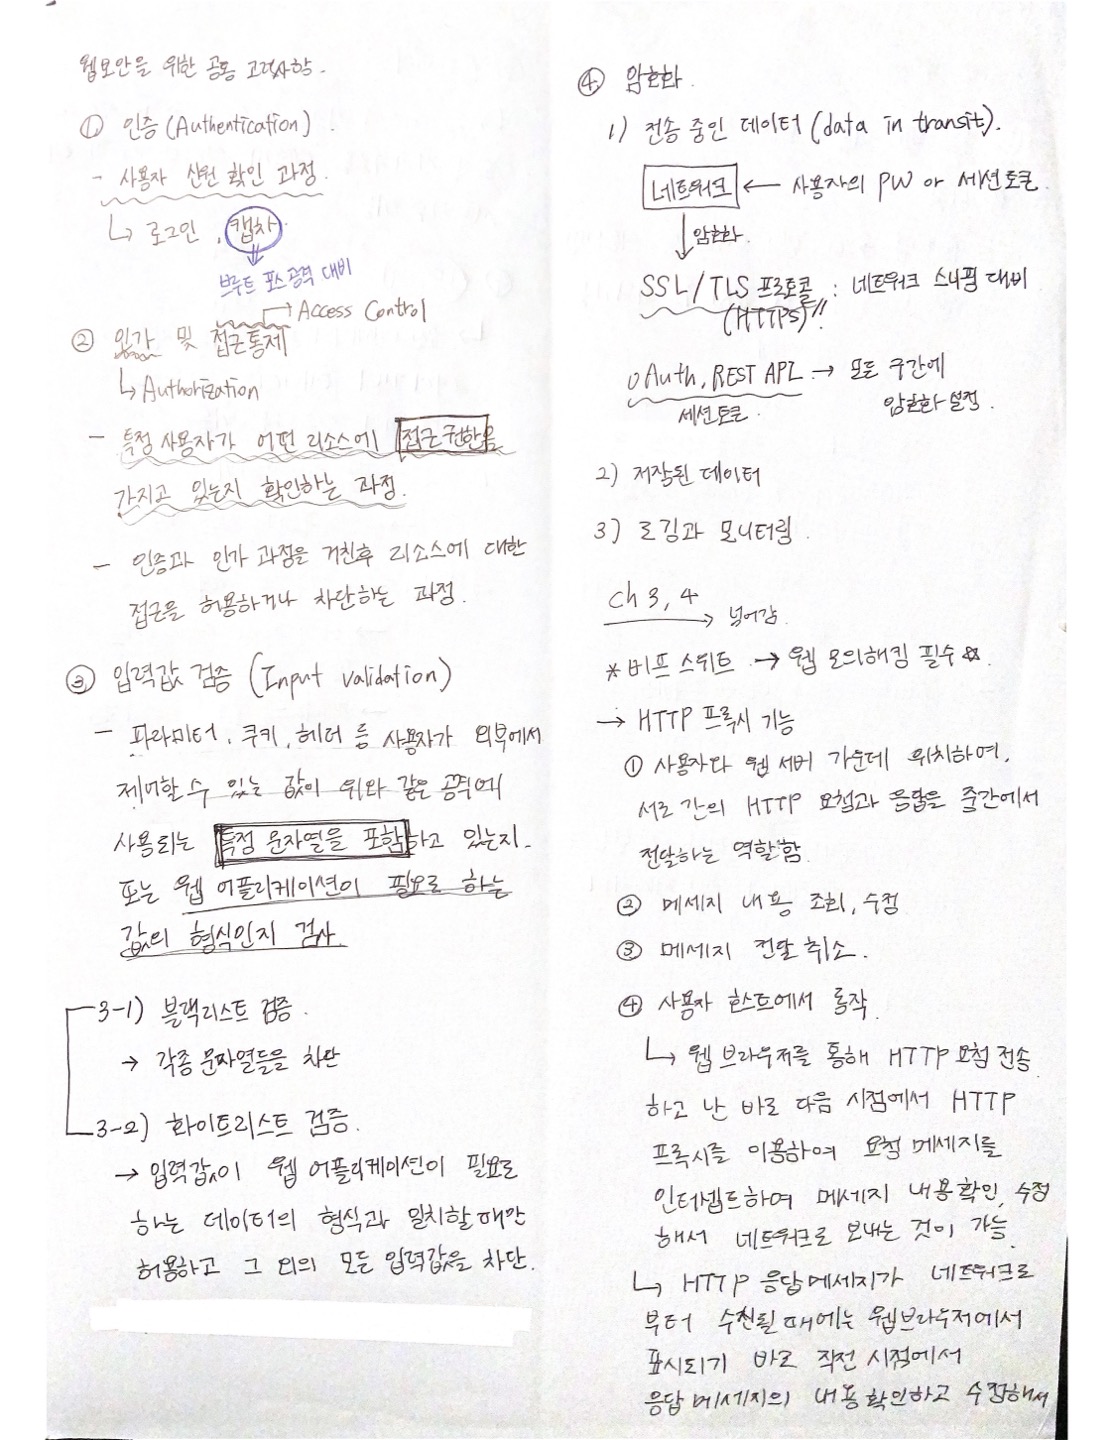 웹보안을 위한 공통 고려사항.
① 인증 (Authentication)
- 사용자 신원 확인 과정.
↳ 로그인, 캡차
브루트 포스 공격 대비
→ Access Control
② 인가 및 접근통제
↳ Authorization
- 특정 사용자가 어떤 리소스에 접근권한을
가지고 있는지 확인하는 과정.
- 인증과 인가 과정을 거친후 리소스에 대한
접근을 허용하거나 차단하는 과정.
③ 입력값 검증 (Input validation)
- 파라미터, 쿠키, 헤더 등 사용자가 외부에서
제어할 수 있는 값이 위와 같은 공격에
사용되는 특정 문자열을 포함하고 있는지.
또는 웹 어플리케이션이 필요로 하는
값의 형식인지 검사
3-1) 블랙리스트 검증.
→ 각종 문자열들을 차단
3-2) 화이트리스트 검증.
→ 입력값이 웹 어플리케이션이 필요로
하는 데이터의 형식과 일치할때만
허용하고 그 외의 모든 입력값을 차단.
④ 암호화
1) 전송 중인 데이터 (data in transit).
네트워크 ← 사용자의 PW or 세션토큰.
↓ 암호화.
SSL/TLS 프로토콜 : 네트워크 스니핑 대비
(HTTPS)!!
OAuth, REST API → 모든 구간에
세션토큰. 암호화 설정.
2) 저장된 데이터
3) 로깅과 모니터링
Ch 3, 4 → 넘어감.
* 버프 스위트 → 웹 모의해킹 필수☆.
→ HTTP 프록시 기능
① 사용자와 웹 서버 가운데 위치하여,
서로 간의 HTTP 요청과 응답을 중간에서
전달하는 역할함.
② 메세지 내용 조회, 수정
③ 메세지 전달 취소.
④ 사용자 호스트에서 동작.
↳ 웹 브라우저를 통해 HTTP 요청 전송
하고 난 바로 다음 시점에서 HTTP
프록시를 이용하여 요청 메세지를
인터셉트하여 메세지 내용확인, 수정
해서 네트워크로 보내는 것이 가능.
↳ HTTP 응답메세지가 네트워크로
부터 수신될 때에는 웹브라우저에서
표시되기 바로 직전 시점에서
응답 메세지의 내용 확인하고 수정해서